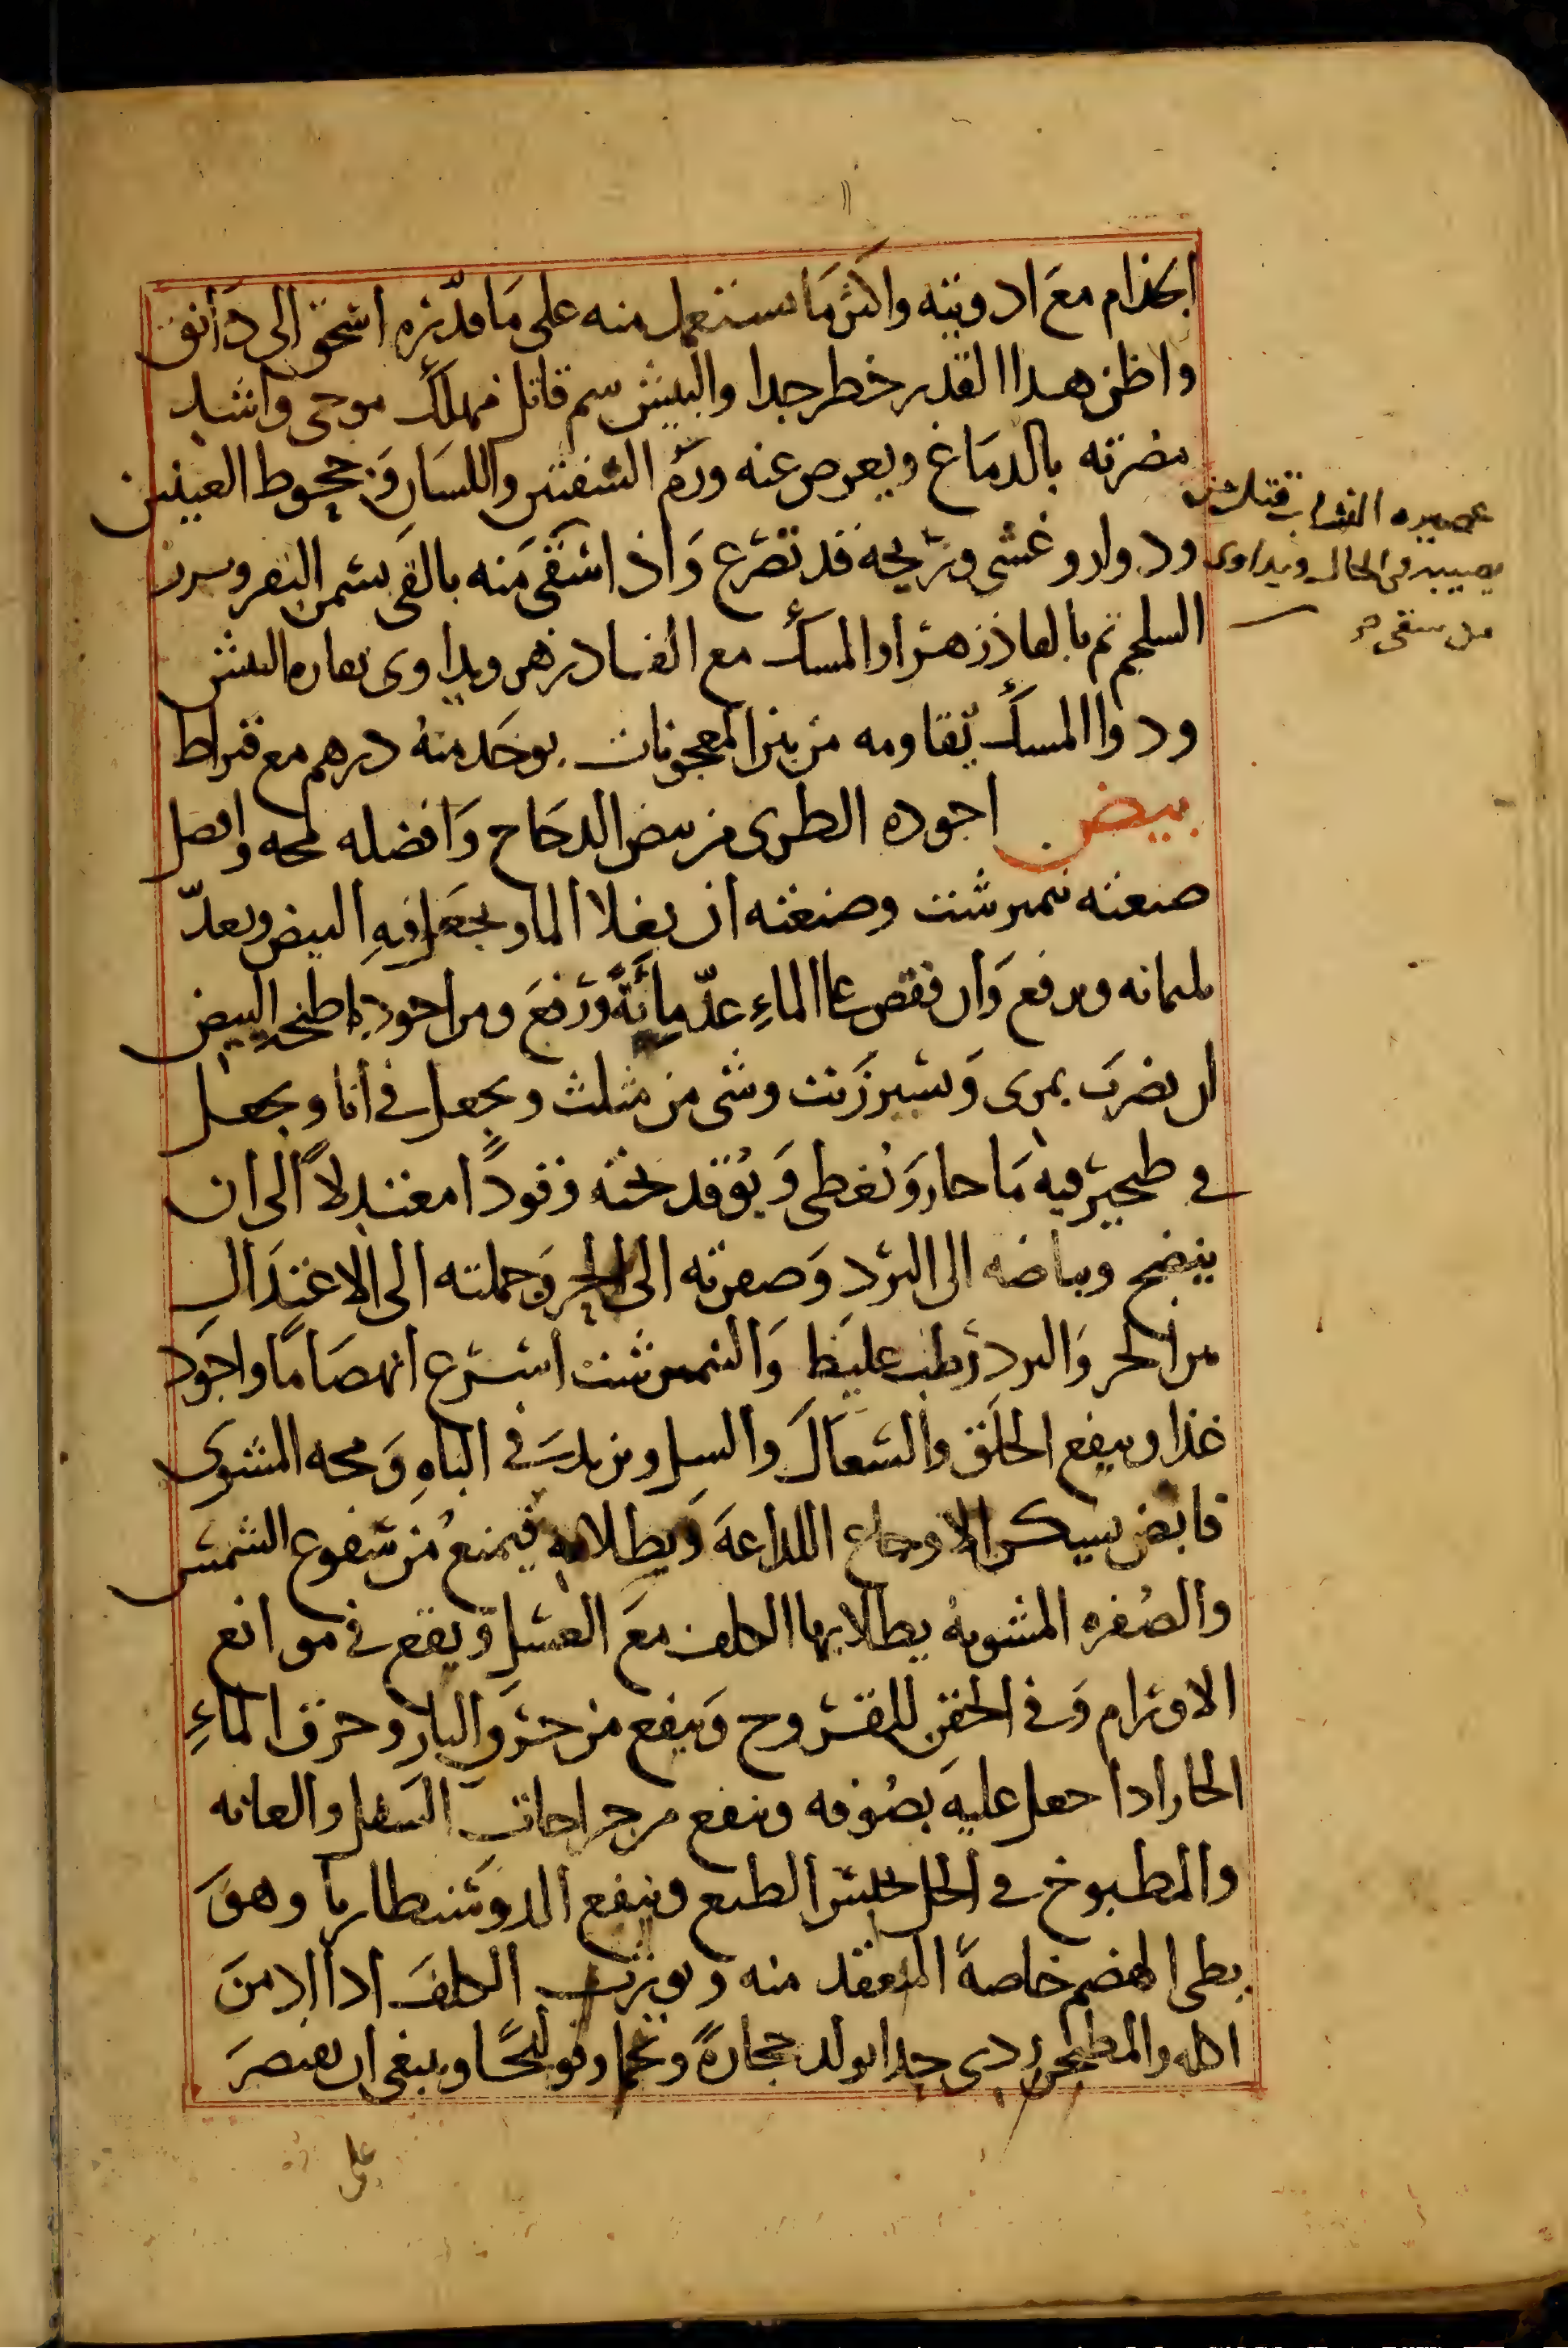 الجذام مع ادويته واكثر ما يستعمل منه على ما قدّره اسحق الى دانق
واظن هذا القدر خطر جدا والبيش سم قاتل مهلك موحى واشد
مضرته بالدماغ ويعرض عنه ورم الشفتين واللسان وجحوط العينين
ودوار وغشى وريحه قد تصرع واذا استقى منه بالقى بسمن البقر وبزر
السلجم ثم بالفاذزهر او المسك مع الفادزهر ويداوى بفاره البيش
ودوا المسك يقاومه من بين المعجونات يوخذ منه درهم مع قيراط
بيض اجوده الطرى من بيض الدجاج وافضله محه وافضل
صنعته نيمبرشت وصنعته ان يغلا الما ويجعل فيه البيض ويعدّ
ثلثمائه ويرفع وان فقص على الماء عدّ مائة ورفع ومن اجود ما طبخ البيض
ان يضرب بمرى وشيرزيت وشى من مثلث ويجعل في انا ويجعل
في طنجير فيه ما حار ويغطى ويوقد تحته وقودًا معتدلاً الى ان
ينضج وبياضه الى البرد وصفرته الى الحر وجملته الى الاعتدال
من الحر والبرد رطب غليظ والنيمبرشت اسرع انهضامًا واجود
غذا وينفع الحلق والسعال والسل ويزيد في الباه ومحه المشوى
قابض يسكن الاوجاع اللداعة ويطلا به فيمنع من سفوع الشمس
والصفره المشويه يطلا بها الكلف مع العسل ويقع في موانع
الاورام وفي الحقن للقروح وينفع من حرق النار وحرق الماء
الحار اذا جعل عليه بصوفه وينفع من جراحات السفل والعانه
والمطبوخ في الخل يحبس الطبع وينفع الدوسنطاريا وهو
بطى الهضم خاصة المنعقد منه ويورث الكلف اذا ادمن
اكله والمطجن ردى جدا يولد حجارة وتخما وقولنجًا وينبغى ان يقتصر
على
عصيره النشاب فتقتل من
يصيبه في الحال ويداوى
من سقى